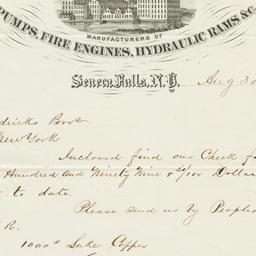 PUMPS, FIRE ENGINES, HYDRAULIC RAMS &C.
MANUFACTURERS OF
Seneca Falls, N.Y. Aug 30
dricks Bros
New York
Inclosed find our Check f
Hundred and Ninety Nine /100 Dollar
to date.
Please send us by Peoples
R.
1000# Lake Copper